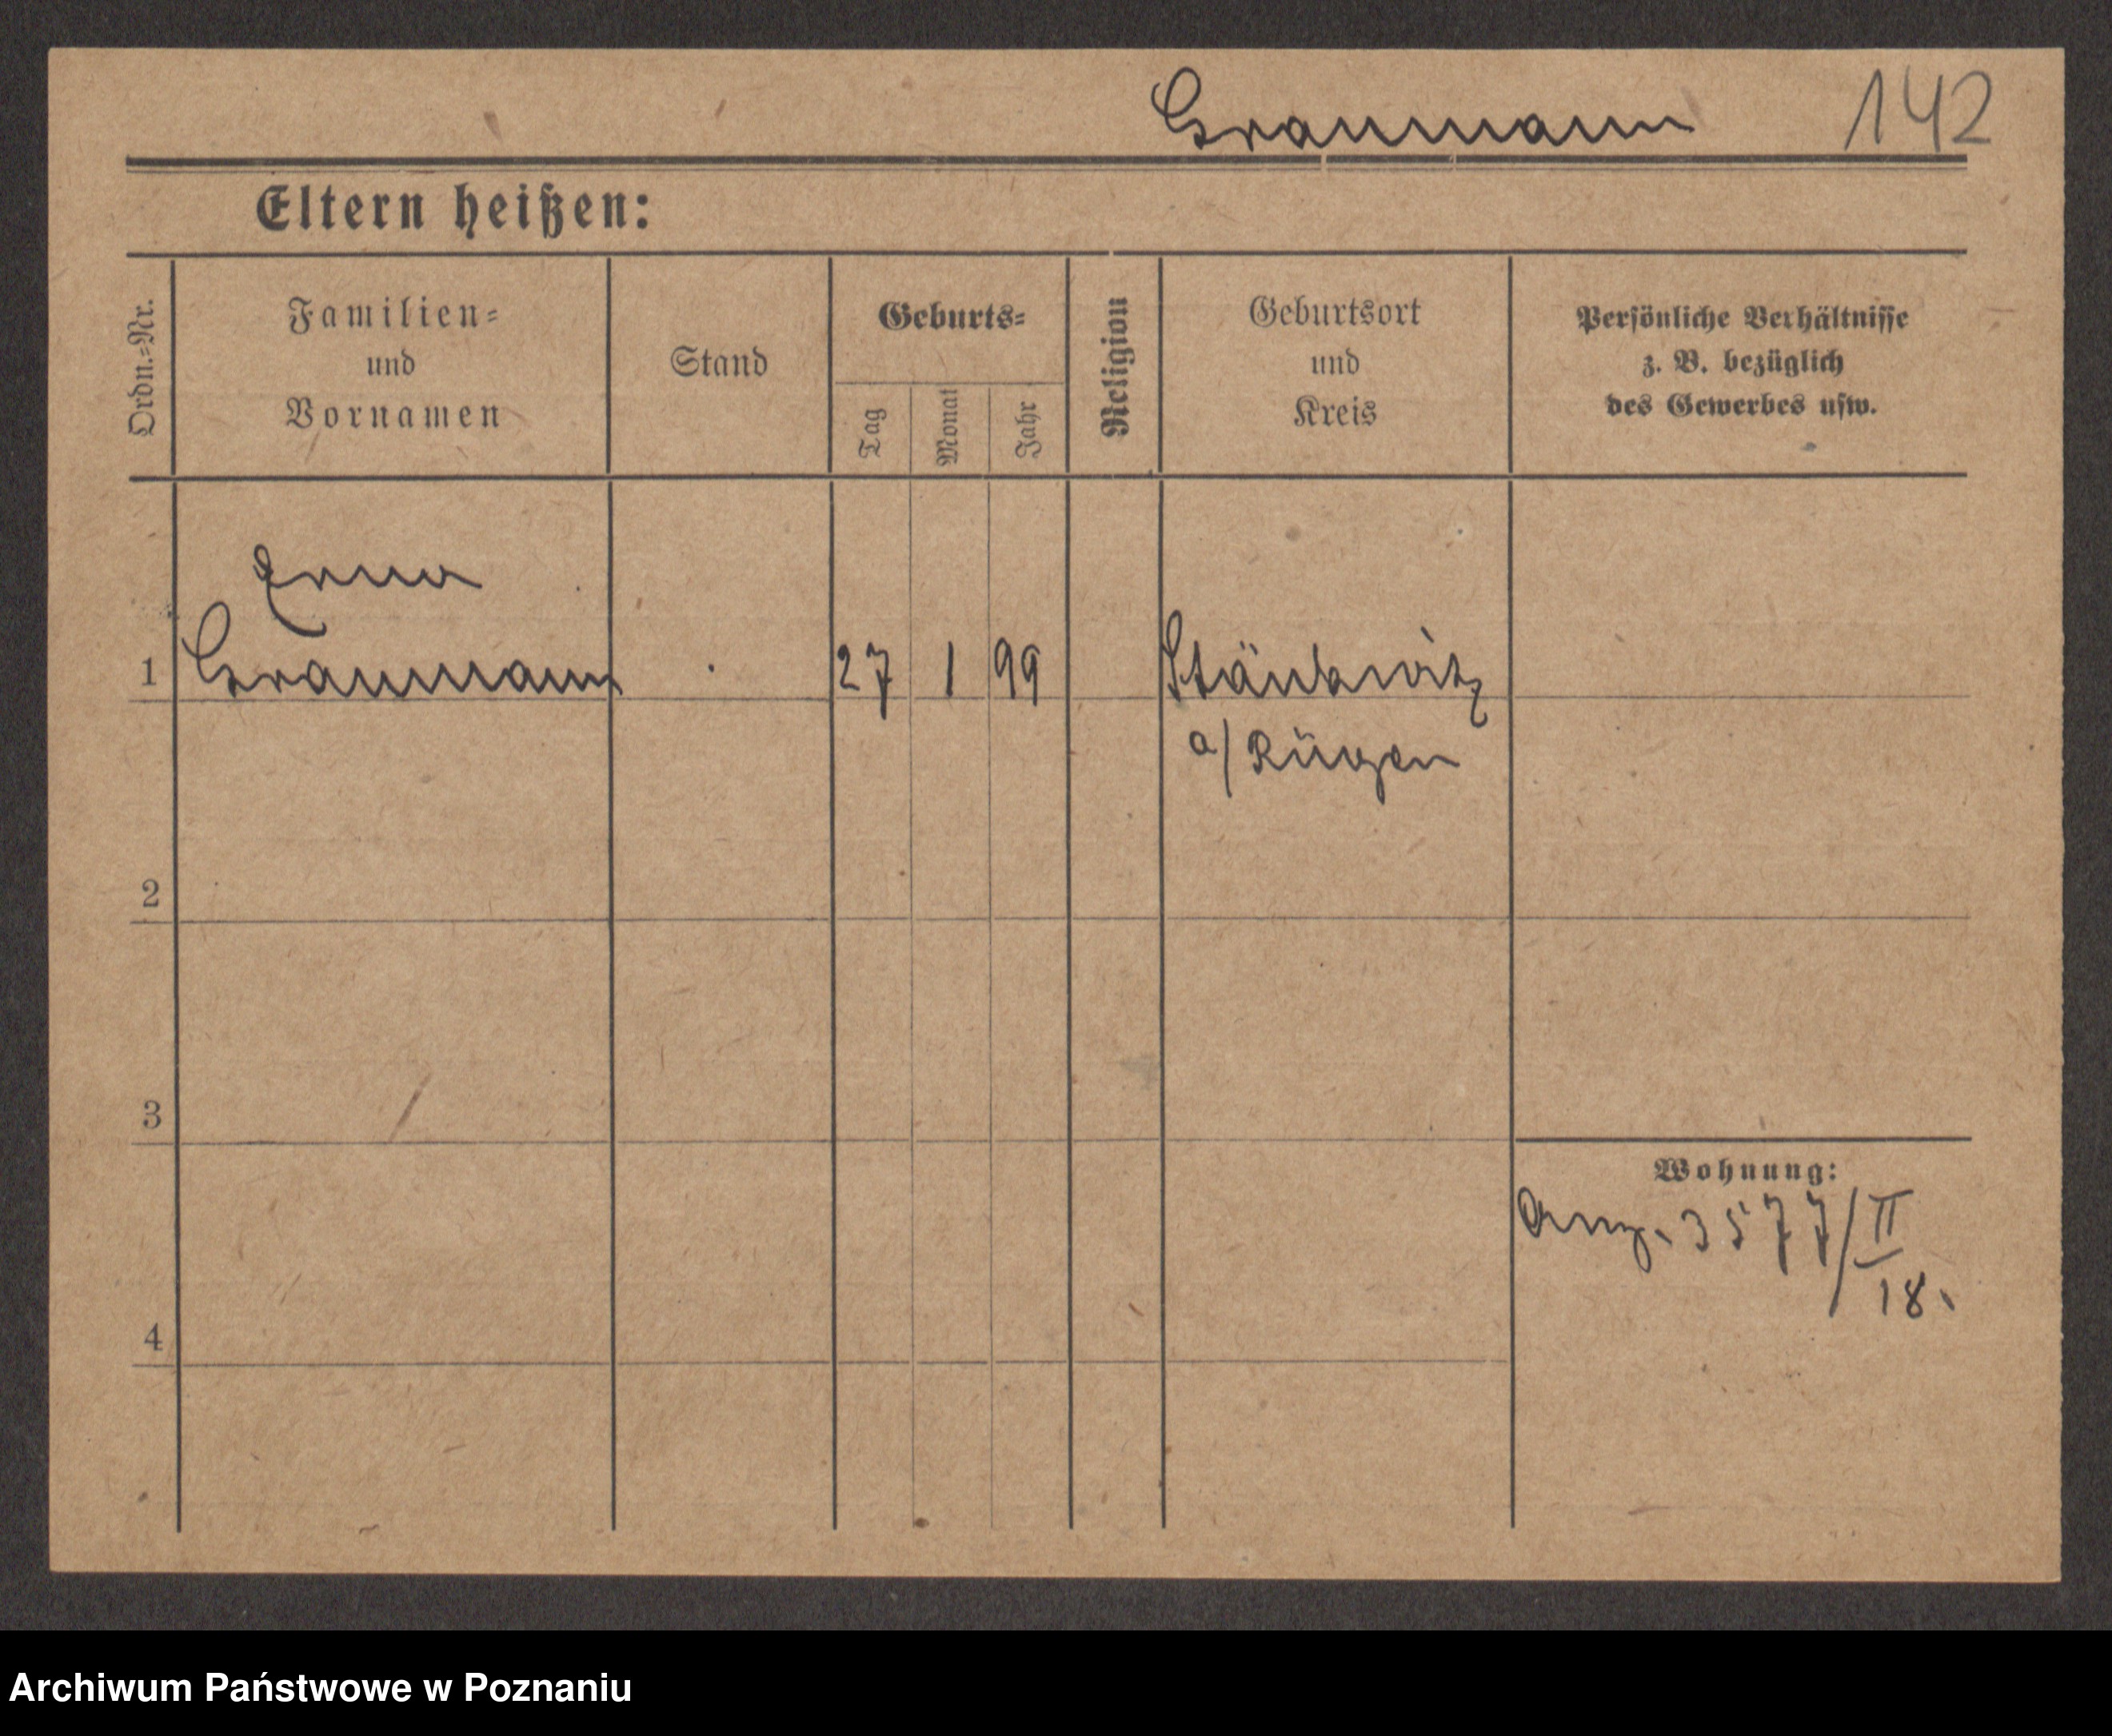 Graumann 142
Eltern heißen:
Ordn.=Nr.
Familien=
und
Vornamen
Stand
Geburts=
Tag
Monat
Jahr
Religion
Geburtsort
und
Kreis
Persönliche Verhältnisse
z. B. bezüglich
des Gewerbes usw.
Erna
1 Graumann 27 1 99
a/ Rügen
2
3
Wohnung:
3577/II
18.
4
Archiwum Państwowe w Poznaniu